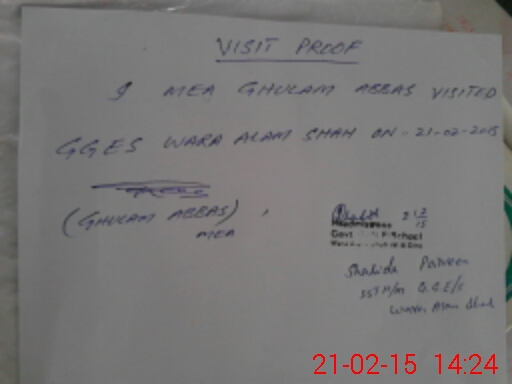 VISIT PROOF
I MEA GHULAM ABBAS VISITED
GGES WARA ALAM SHAH ON - 21-02-2015
(GHULAM ABBAS)
MEA
21/2
15
Headmistress
Govt
School
Shahida Parveen
SST H/M G.G.E/S
Wara Alam Shah
21-02-15 14:24